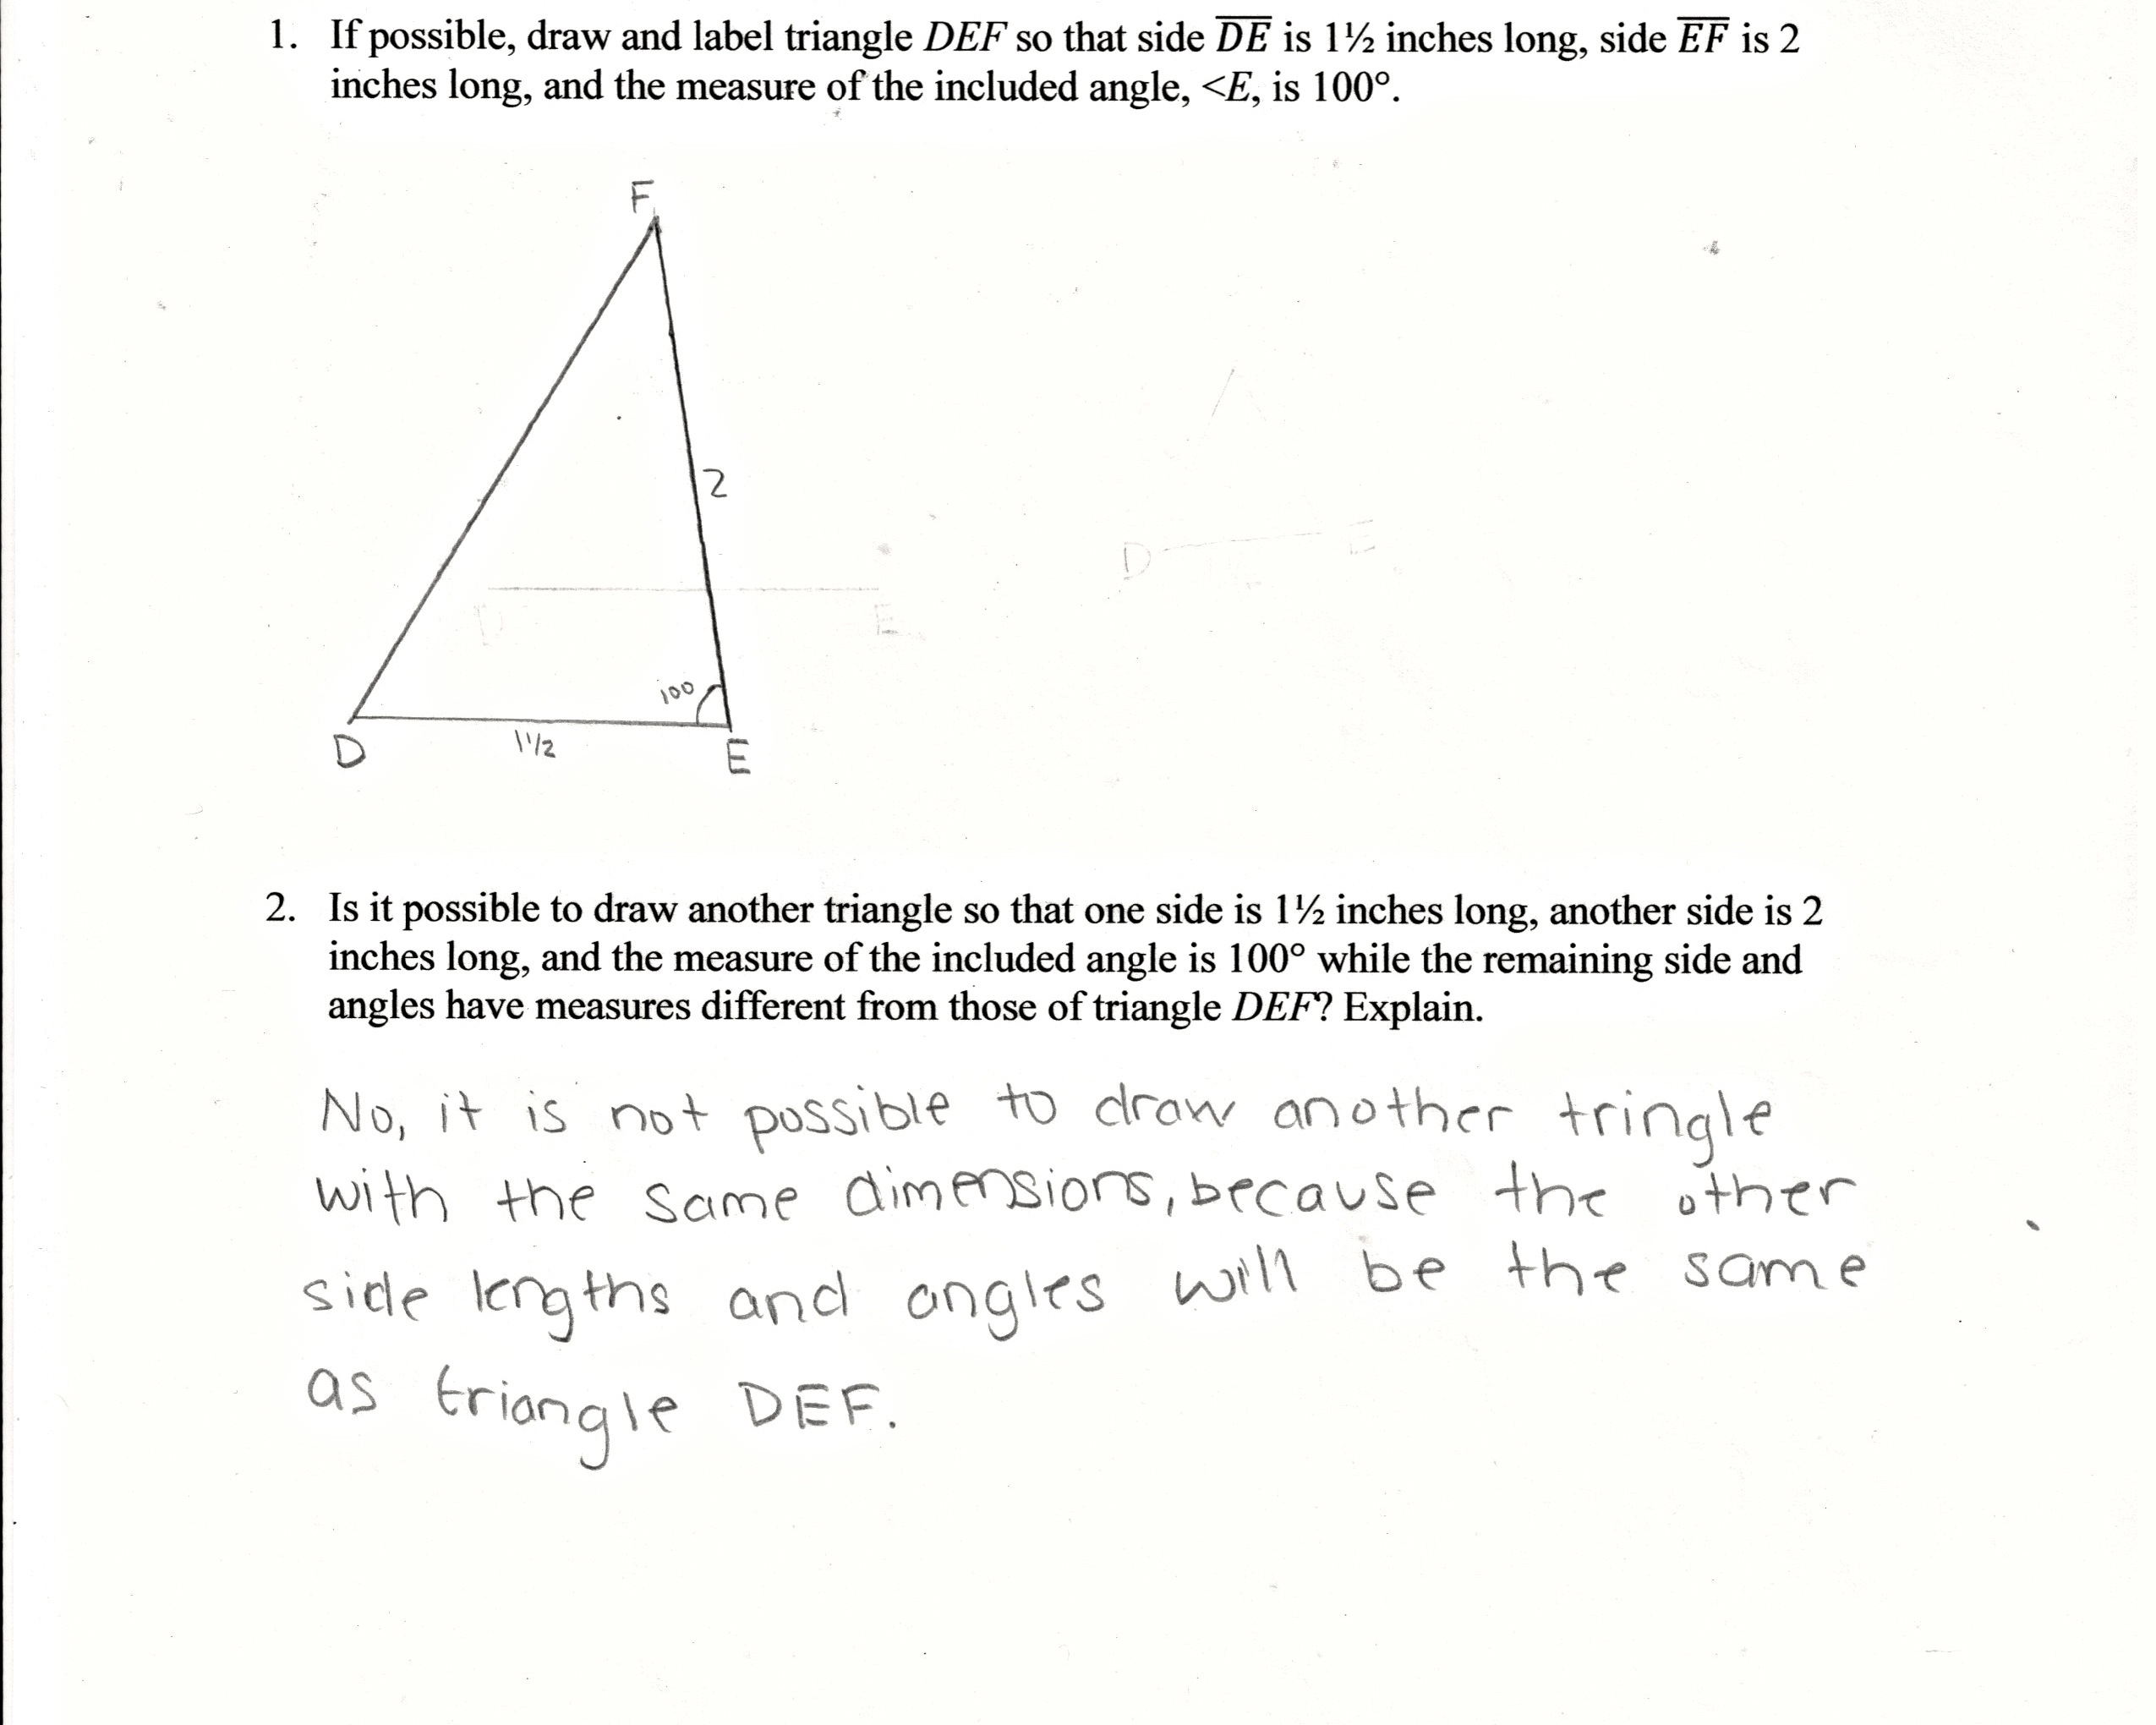 1. If possible, draw and label triangle DEF so that side DE is 1½ inches long, side EF is 2
inches long, and the measure of the included angle, <E, is 100°.
F
2
D E
E
100
D 1 1/2 E
2. Is it possible to draw another triangle so that one side is 1½ inches long, another side is 2
inches long, and the measure of the included angle is 100° while the remaining side and
angles have measures different from those of triangle DEF? Explain.
No, it is not possible to draw another tringle
with the same dimensions, because the other
side lengths and angles will be the same
as triangle DEF.